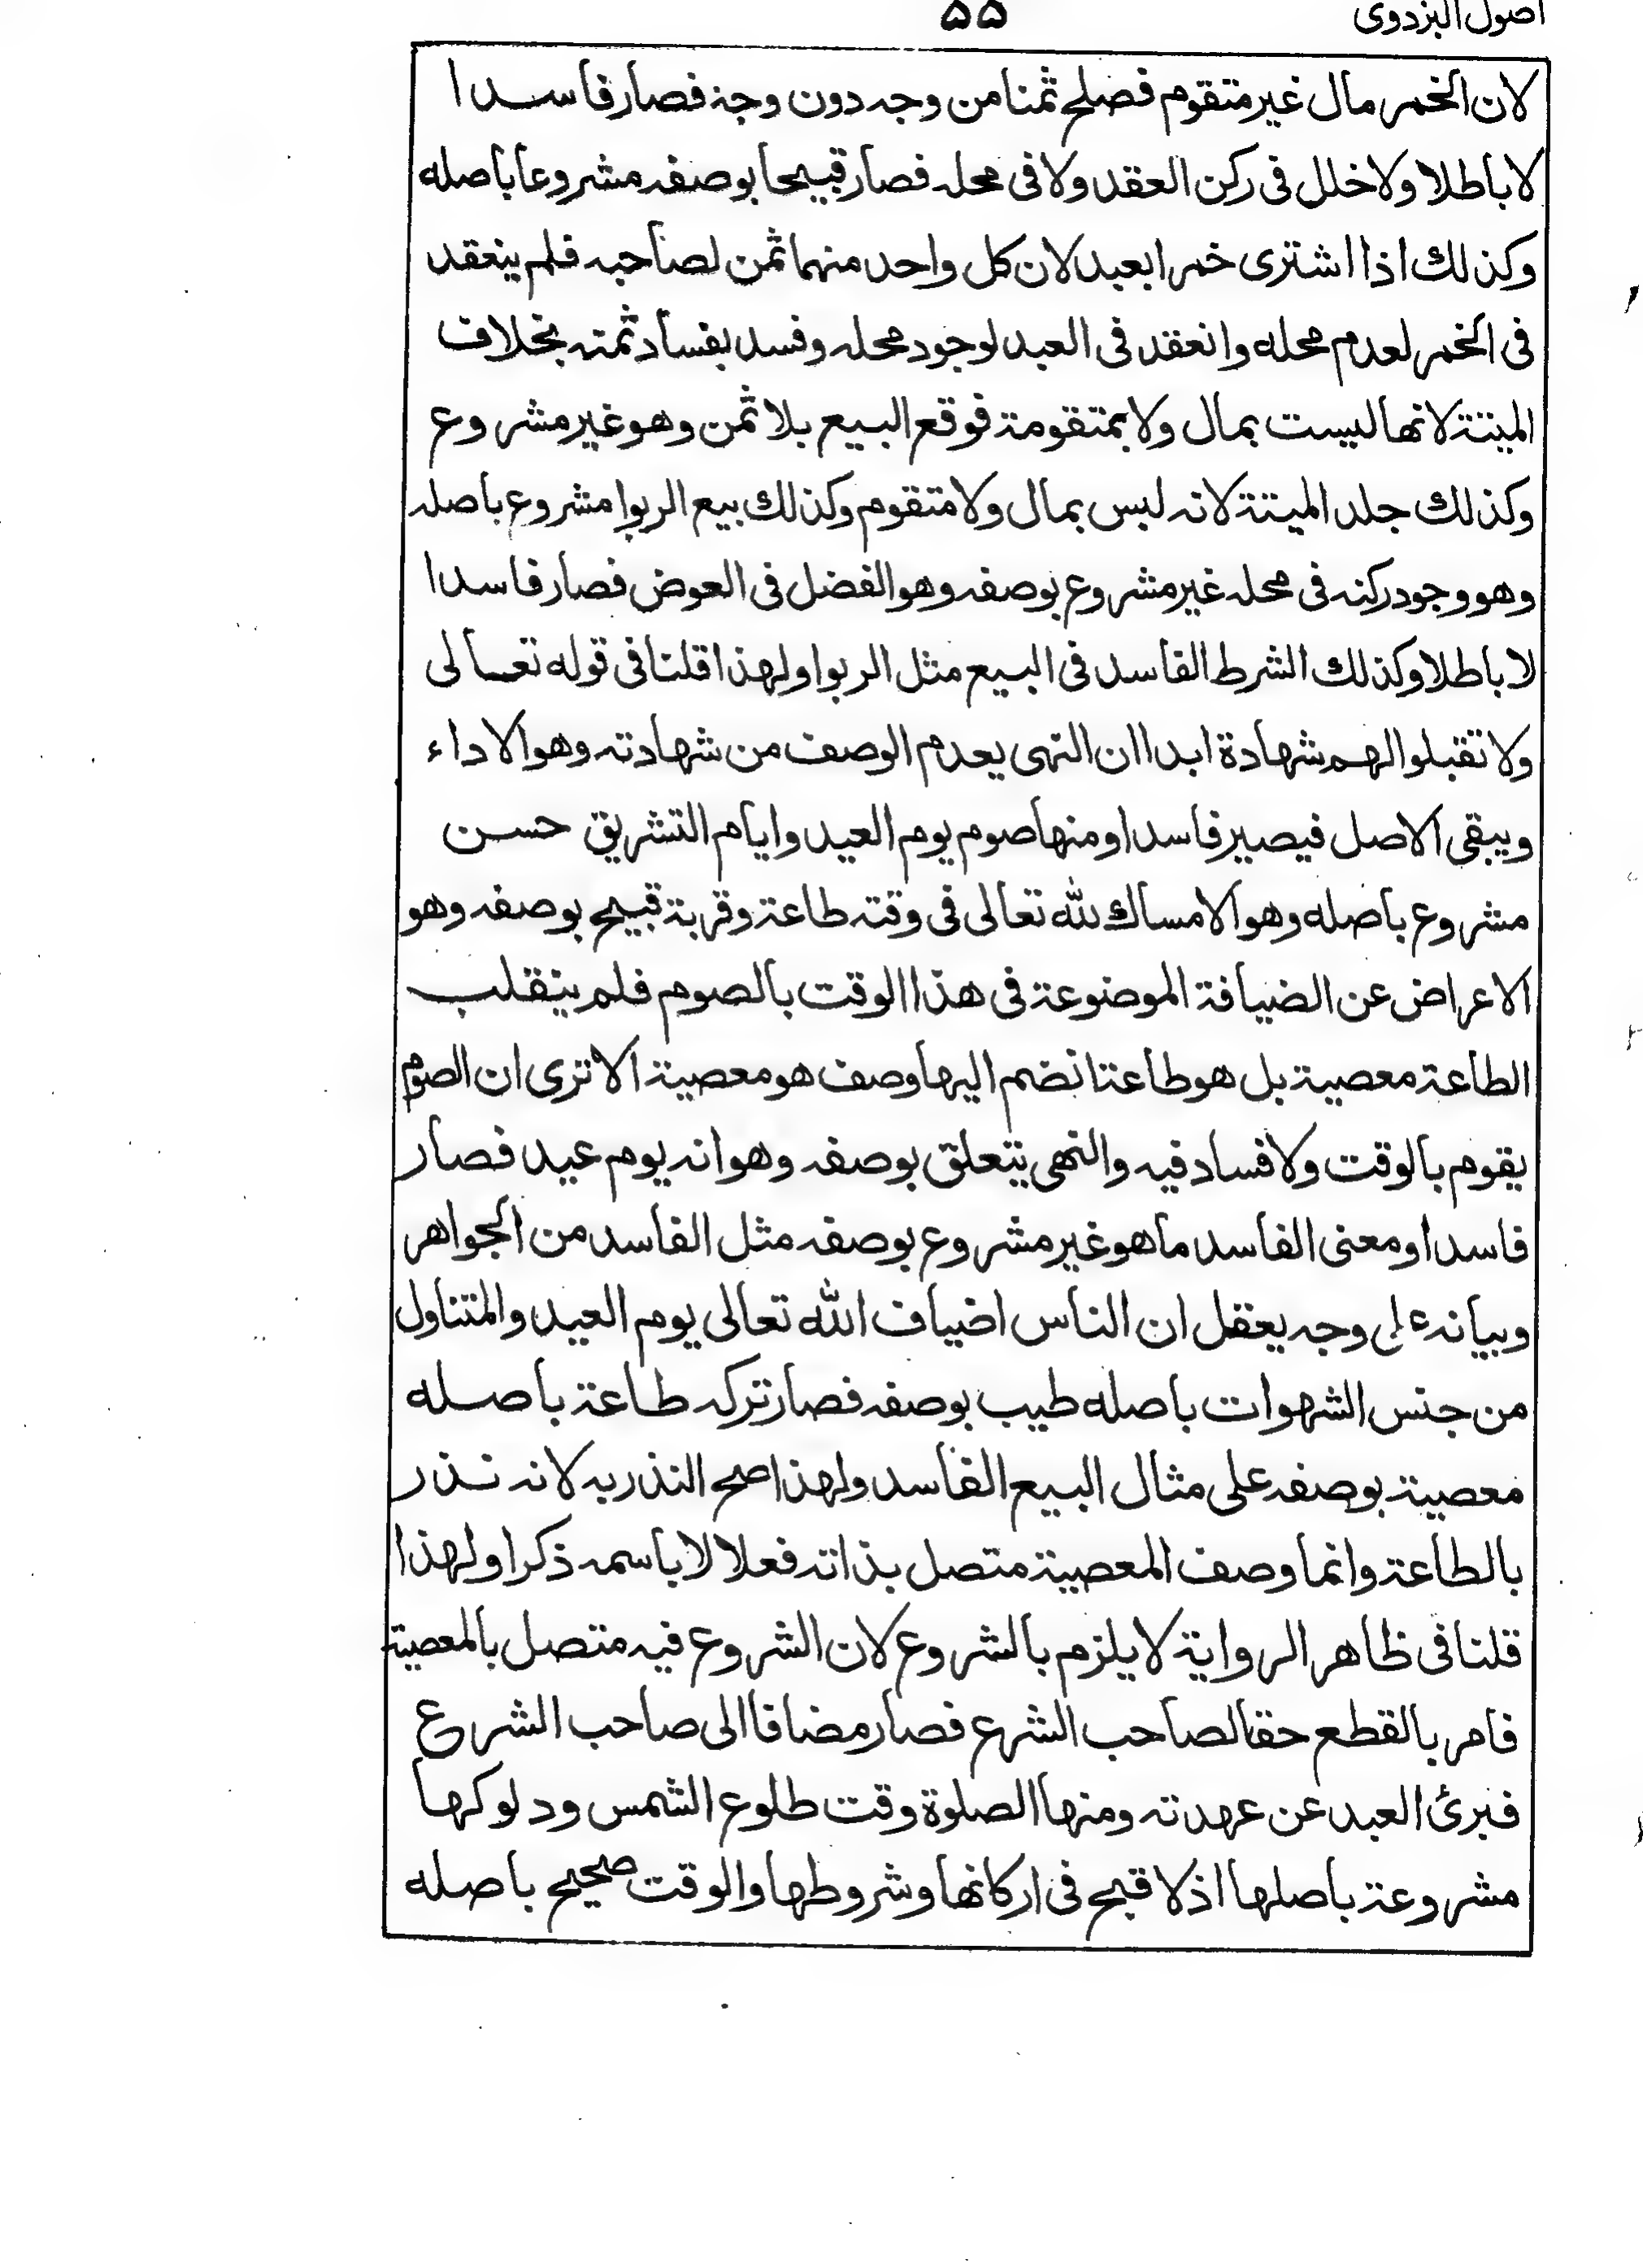 اصول البزدوى
۵۵
لان الخمر مال غير متقوم فصلح ثمنا من وجه دون وجه فصار فاسدا
لا باطلا ولا خلل فى ركن العقد ولا فى محله فصار قبيحا بوصفه مشروعا باصله
وكذلك اذا اشترى خمرا بعبد لان كل واحد منهما ثمن لصاحبه فلم ينعقد
فى الخمر لعدم محله وانعقد فى العبد لوجود محله وفسد بفساد ثمنه بخلاف
الميتة لانها ليست بمال ولا بمتقومة فوقع البيع بلا ثمن وهو غير مشروع
وكذلك جلد الميتة لانه ليس بمال ولا متقوم وكذلك بيع الربوا مشروع باصله
وهو وجود ركنه فى محله غير مشروع بوصفه وهو الفضل فى العوض فصار فاسدا
لا باطلا وكذلك الشرط الفاسد فى البيع مثل الربوا ولهذا قلنا فى قوله تعالى
ولا تقبلوا لهم شهادة ابدا ان النهى يعدم الوصف من شهادته وهو الاداء
ويبقى الاصل فيصير فاسدا ومنها صوم يوم العيد وايام التشريق حسن
مشروع باصله وهو الامساك لله تعالى فى وقته طاعة وقربة قبيح بوصفه وهو
الاعراض عن الضيافة الموضوعة فى هذا الوقت بالصوم فلم ينقلب
الطاعة معصية بل هو طاعة انضم اليها وصف هو معصية الا ترى ان الصوم
يقوم بالوقت ولا فساد فيه والنهى يتعلق بوصفه وهو انه يوم عيد فصار
فاسدا ومعنى الفاسد ما هو غير مشروع بوصفه مثل الفاسد من الجواهر
وبيانه على وجه يعقل ان الناس اضياف الله تعالى يوم العيد والمتناول
من جنس الشهوات باصله طيب بوصفه فصار تركه طاعة باصله
معصية بوصفه على مثال البيع الفاسد ولهذا صح النذر به لانه نذر
بالطاعة وانما وصف المعصية متصل بذاته فعلا لا باسمه ذكرا ولهذا
قلنا فى ظاهر الرواية لا يلزم بالشروع لان الشروع فيه متصل بالمعصية
فامر بالقطع حقا لصاحب الشرع فصار مضافا الى صاحب الشرع
فبرئ العبد عن عهدته ومنها الصلوة وقت طلوع الشمس ودلوكها
مشروعة باصلها اذ لا قبح فى اركانها وشروطها والوقت صحيح باصله